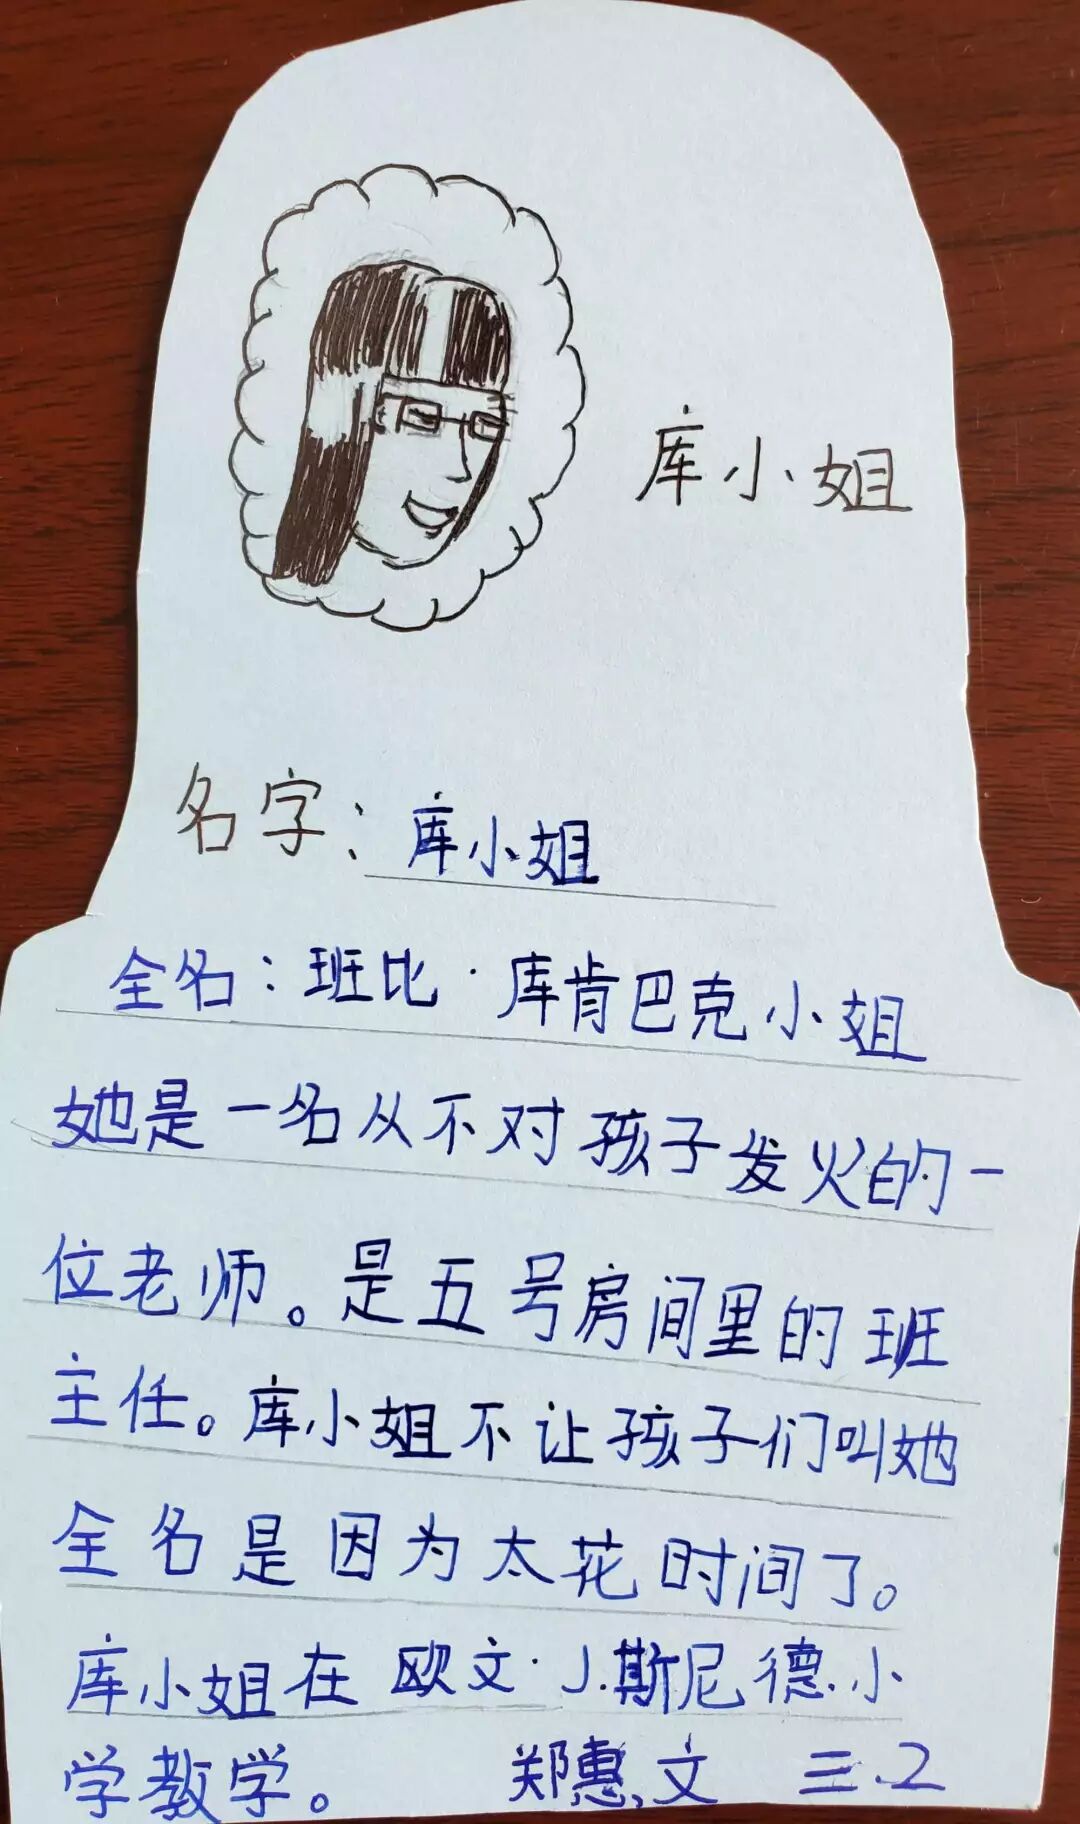 库小姐
名字：库小姐
全名：班比·库肯巴克小姐
她是一名从不对孩子发火的一
位老师。是五号房间里的班
主任。库小姐不让孩子们叫她
全名是因为太花时间了。
库小姐在欧文·J.斯尼德.小
学教学。 郑惠文 三.2